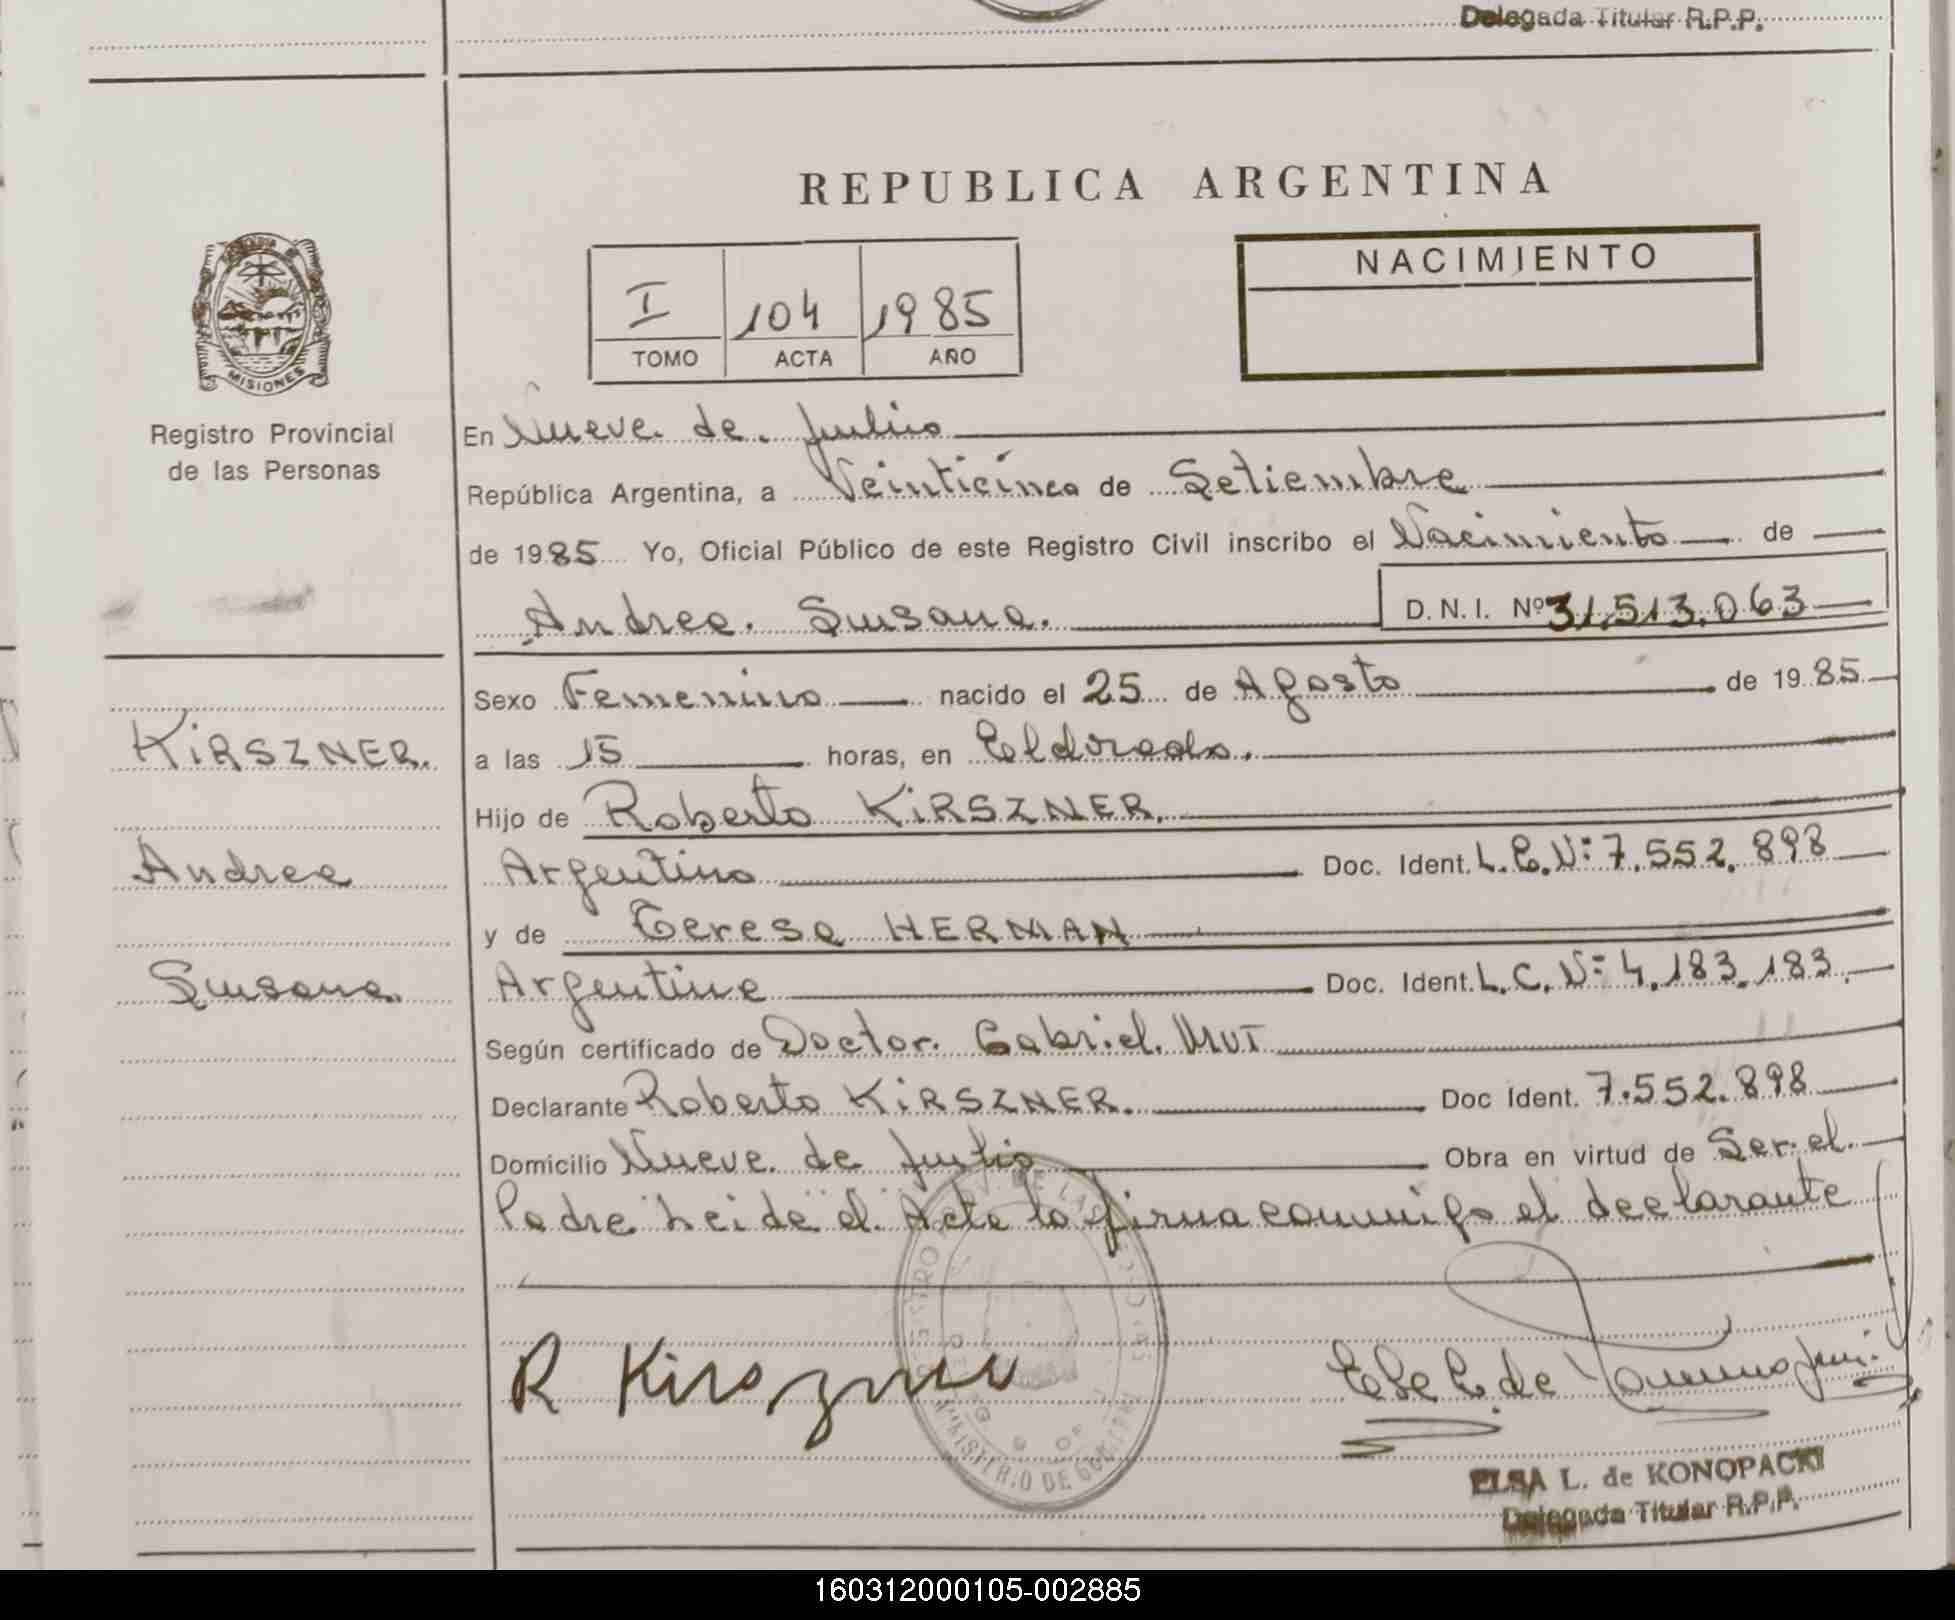 Delegada Titular R.P.P.
REPUBLICA ARGENTINA
MISIONES
Registro Provincial
de las Personas
I 104 1985
TOMO ACTA AÑO
NACIMIENTO
En Nueve de Julio
República Argentina, a Veinticinco de Setiembre
de 1985 Yo, Oficial Público de este Registro Civil inscribo el Nacimiento de
Andrea Susana. D.N.I. Nº 31.513.063
Sexo Femenino nacido el 25 de Agosto de 1985
KiRSZNER. a las 15 horas, en Eldorado.
Hijo de Roberto KiRSZNER.
Andrea Argentino Doc. Ident. L.E.Nº 7.552.898
y de Teresa HERMAN
Susana Argentina Doc. Ident. L.C.Nº 4.183.183.
Según certificado de Doctor. Gabriel. MUT
Declarante Roberto KiRSZNER. Doc Ident. 7.552.898
Domicilio Nueve de Julio Obra en virtud de Ser el
Padre Leida el Acta la firma conmigo el declarante
R Kirszner
ELSA L. de KONOPACKI
Delegada Titular R.P.P.
160312000105-002885